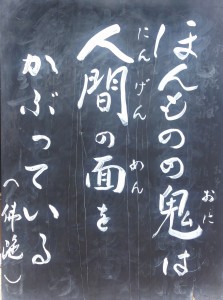 おに
ほんものの鬼は
にんげん めん
人間の面を
かぶっている